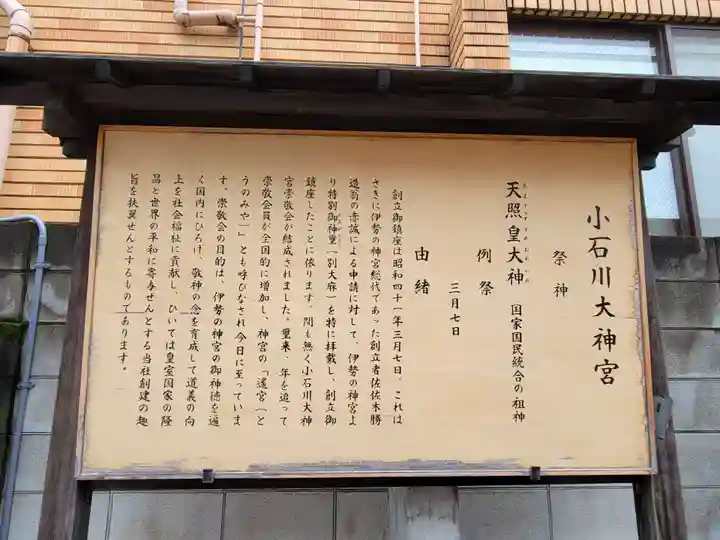 小石川大神宮
祭神
天照皇大神 国家国民統合の祖神
例祭
三月七日
由緒
創立御鎮座は昭和四十一年三月七日。これは
さきに伊勢の神宮総代であった創立者佐佐木勝
造翁の赤誠による申請に対して、伊勢の神宮よ
り特別御神璽「別大麻」を特に拝戴し、創立御
鎮座したことに依ります。間も無く小石川大神
宮崇敬会が結成されました。爾来、年を追って
崇敬会員が全国的に増加し、神宮の「遥宮(と
うのみや)」とも呼びなされ今日に至っていま
す。崇敬会の目的は、伊勢の神宮の御神徳を遍
く国内にひろげ、敬神の念を育成して道義の向
上を社会福祉に貢献し、ひいては皇室国家の隆
昌と世界の平和に寄与せんとする当社創建の趣
旨を扶翼せんとするものであります。